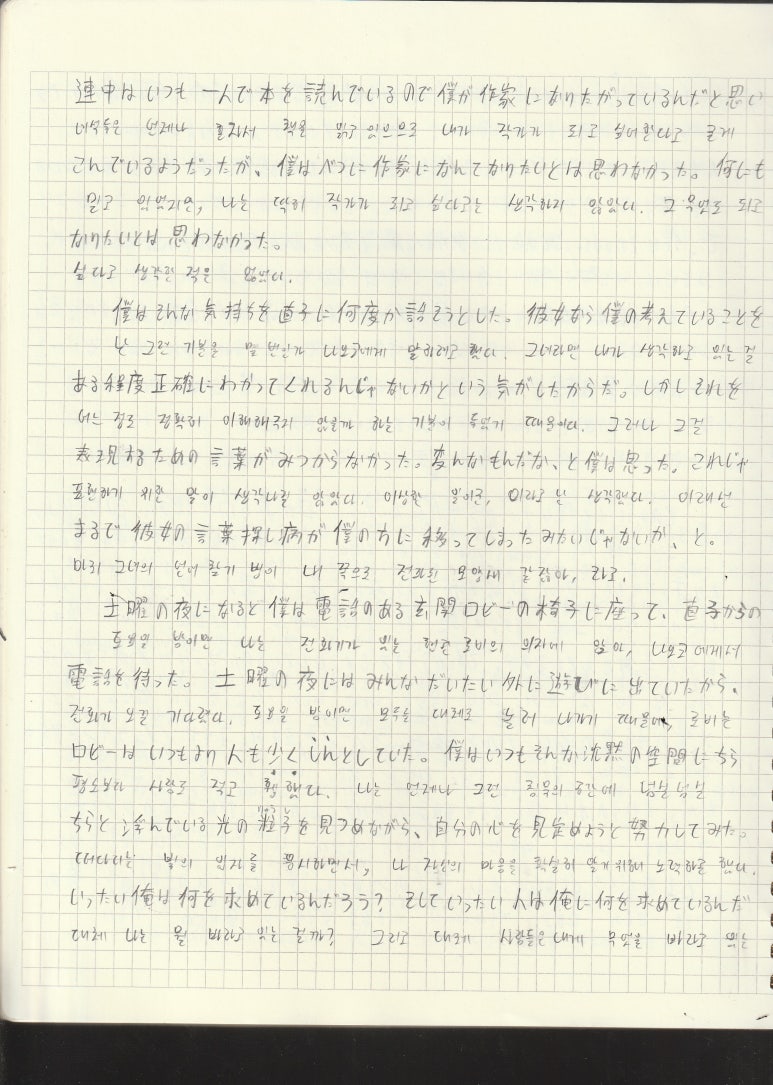 連中はいつも一人で本を読んでいるので僕が作家になりたがっているんだと思い
녀석들은 언제나 혼자서 책을 읽고 있으므로 내가 작가가 되고 싶어한다고 믿게
こんでいるようだったが、僕はべつに作家になんてなりたいとは思わなかった。何にも
믿고 있었지만, 나는 딱히 작가가 되고 싶다고는 생각하지 않았다. 그 무엇도 되고
なりたいとは思わなかった。
싶다고 생각한 적은 없었다.
僕はそんな気持ちを直子に何度か話そうとした。彼女なら僕の考えていることを
난 그런 기분을 몇 번인가 나오코에게 말하려고 했다. 그녀라면 내가 생각하고 있는 걸
ある程度正確にわかってくれるんじゃないかという気がしたからだ。しかしそれを
어느 정도 정확히 이해해주지 않을까 하는 기분이 들었기 때문이다. 그러나 그걸
表現するための言葉がみつからなかった。変なもんだな、と僕は思った。これじゃ
표현하기 위한 말이 생각나질 않았다. 이상한 일이군, 이라고 난 생각했다. 이래선
まるで彼女の言葉探し病が僕の方に移ってしまったみたいじゃないか、と。
마치 그녀의 언어 찾기 병이 내 쪽으로 전화된 모양새 같잖아, 라고.
土曜の夜になると僕は電話のある玄関ロビーの椅子に座って、直子からの
토요일 밤이면 나는 전화기가 있는 현관 로비의 의자에 앉아, 나오코에게서
電話を待った。土曜の夜にはみんなだいたい外に遊びに出ていたから、
전화가 오길 기다렸다. 토요일 밤이면 모두들 대체로 놀러 나가기 때문에, 로비는
ロビーはいつもより人も少くしんとしていた。僕はいつもそんな沈黙の空間にちら
평소보다 사람도 적고 휑했다. 나는 언제나 그런 침묵의 공간에 넘실넘실
ちらと浮んでいる光の粒子を見つめながら、自分の心を見定めようと努力してみた。
떠다니는 빛의 입자를 응시하면서, 나 자신의 마음을 확실히 알기위해 노력하곤 했다.
いったい俺は何を求めているんだろう? そしていったい人は俺に何を求めているんだ
대체 나는 뭘 바라고 있는 걸까? 그리고 대체 사람들은 내게 무엇을 바라고 있는